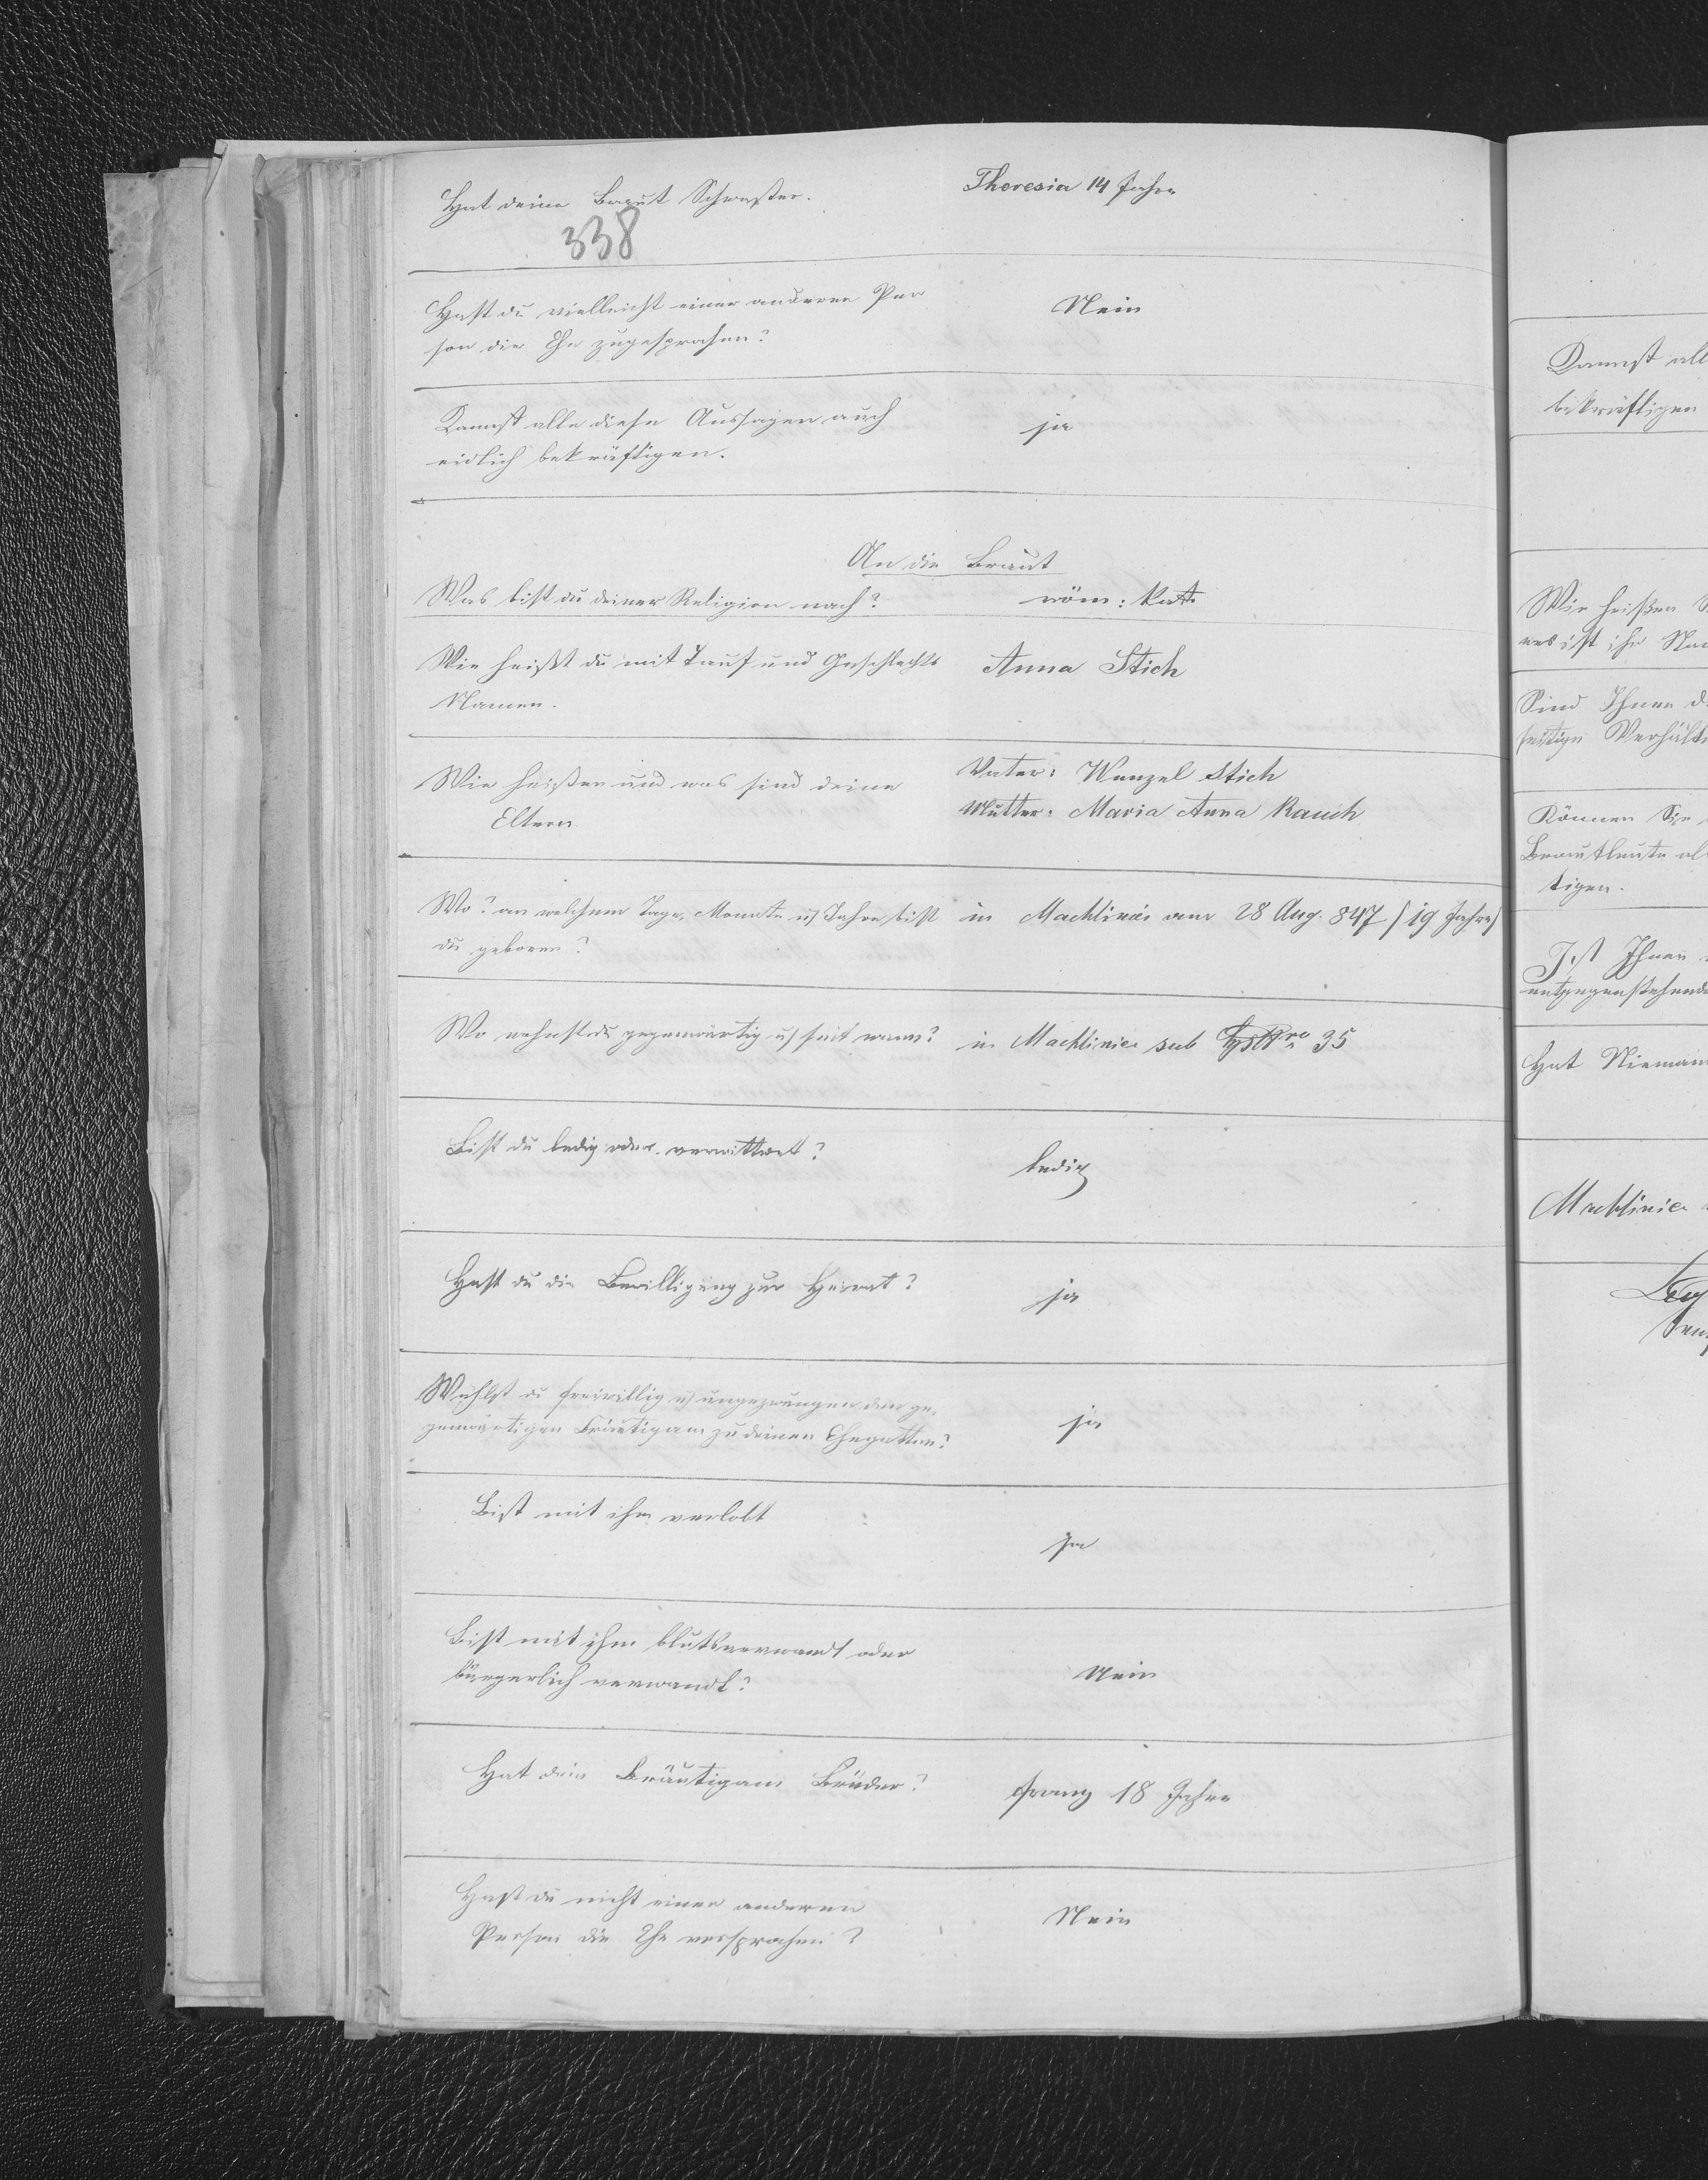 Hat deine Braut Schwester.
Theresia 14 Jahre
338
Hast du vielleicht einer anderen Per
son die Ehe zugesprochen?
Nein
Kannst alle diese Aussagen auch
eidlich bekräftigen.
ja
An die Braut
Was bist du deiner Religion nach?
röm: kat.
Wie heißt du mit Tauf und Geschlechts
Namen.
Anna Stich
Wie heißen und was sind deine
Eltern
Vater: Wenzel Stich
Mutter: Maria Anna Rauch
Wo? an welchem Tage, Monate u/ Jahre bist
du geboren?
in Machliniec am 28 Aug. 847 / 19 Jahre/
Wo wohnst du gegenwärtig u/ seit wann?
in Machliniec sub 35
Bist du ledig oder verwittwet?
ledig
Hast du die Bewilligung zur Heirat?
ja
Wählst du freiwillig u/ ungezwungen den ge-
genwärtigen Bräutigam zu deinen Ehegatten?
ja
Bist mit ihm verlobt
ja
Bist mit ihm blutsverwandt oder
bürgerlich verwandt?
Nein
Hat dein Bräutigam Brüder?
Franz 18 Jahre
Hast du nicht einer anderen
Person die Ehe versprochen?
Nein
Kannst all
bekräftigen
Wie heißen S
was ist ihr
Sind Ihnen d
seitige Verhält
Können Sie
Brautleute al
tigen.
Ist Ihnen
entgegenstehende
Hat Nieman
Machliniec